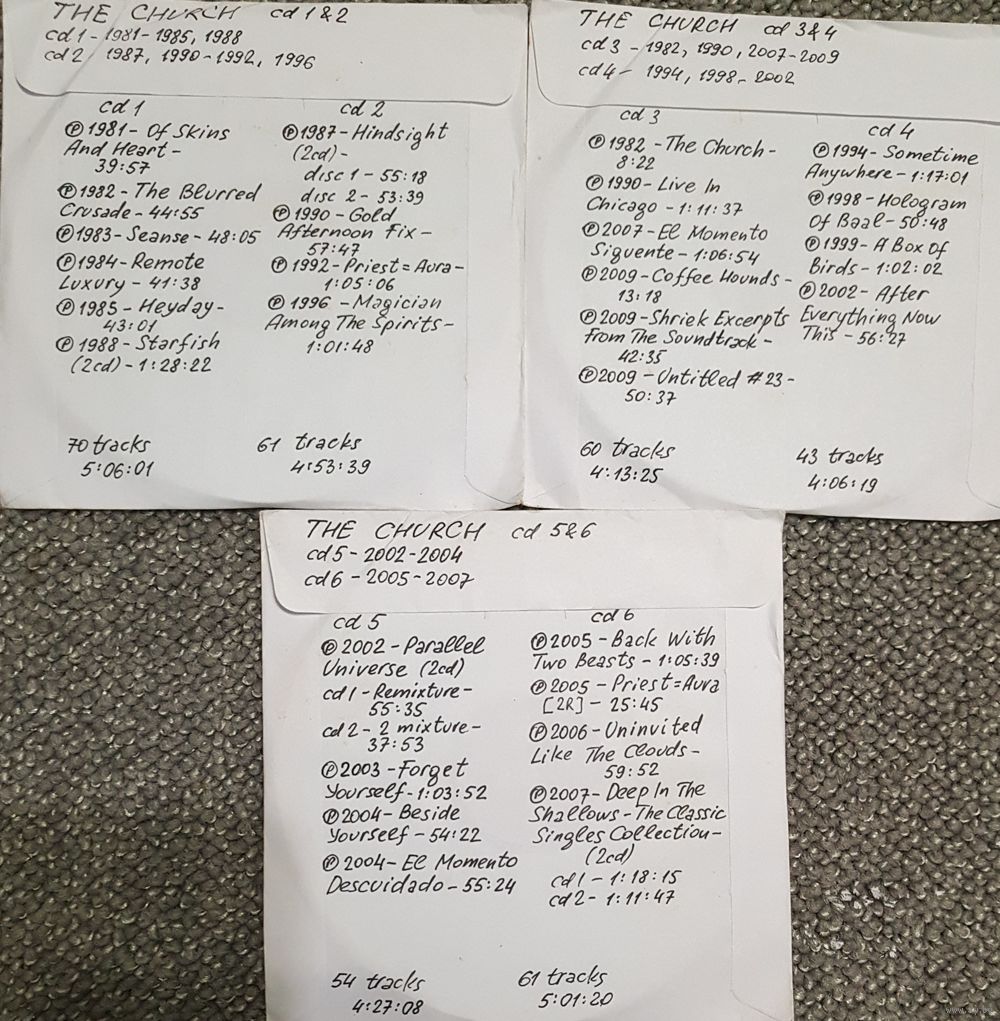 THE CHURCH cd 1&2
cd 1 - 1981-1985, 1988
cd 2 1987, 1990-1992, 1996
cd 1
Ⓟ 1981 - Of Skins
And Heart -
39:57
Ⓟ 1982 - The Blurred
Crusade - 44:55
Ⓟ 1983 - Seanse - 48:05
Ⓟ 1984 - Remote
Luxury - 41:38
Ⓟ 1985 - Heyday -
43:01
Ⓟ 1988 - Starfish
(2cd) - 1:28:22
70 tracks
5:06:01
cd 2
Ⓟ 1987 - Hindsight
(2cd) -
disc 1 - 55:18
disc 2 - 53:39
Ⓟ 1990 - Gold
Afternoon Fix -
57:47
Ⓟ 1992 - Priest = Aura -
1:05:06
Ⓟ 1996 - Magician
Among The Spirits -
1:01:48
61 tracks
4:53:39
THE CHURCH cd 3&4
cd 3 - 1982, 1990, 2007-2009
cd 4 - 1994, 1998-2002
cd 3
Ⓟ 1982 - The Church -
8:22
Ⓟ 1990 - Live In
Chicago - 1:11:37
Ⓟ 2007 - El Momento
Siguente - 1:06:54
Ⓟ 2009 - Coffee Hounds -
13:18
Ⓟ 2009 - Shriek Excerpts
From The Soundtrack -
42:35
Ⓟ 2009 - Untitled #23 -
50:37
60 tracks
4:13:25
cd 4
Ⓟ 1994 - Sometime
Anywhere - 1:17:01
Ⓟ 1998 - Hologram
Of Baal - 50:48
Ⓟ 1999 - A Box Of
Birds - 1:02:02
Ⓟ 2002 - After
Everything Now
This - 56:27
43 tracks
4:06:19
THE CHURCH cd 5&6
cd 5 - 2002-2004
cd 6 - 2005-2007
cd 5
Ⓟ 2002 - Parallel
Universe (2cd)
cd 1 - Remixture -
55:35
cd 2 - 2 mixture -
37:53
Ⓟ 2003 - Forget
Yourself - 1:03:52
Ⓟ 2004 - Beside
Yourself - 54:22
Ⓟ 2004 - El Momento
Descuidado - 55:24
54 tracks
4:27:08
cd 6
Ⓟ 2005 - Back With
Two Beasts - 1:05:39
Ⓟ 2005 - Priest = Aura
[2R] - 25:45
Ⓟ 2006 - Uninvited
Like The Clouds -
59:52
Ⓟ 2007 - Deep In The
Shallows - The Classic
Singles Collection -
(2cd)
cd 1 - 1:18:15
cd 2 - 1:11:47
61 tracks
5:01:20